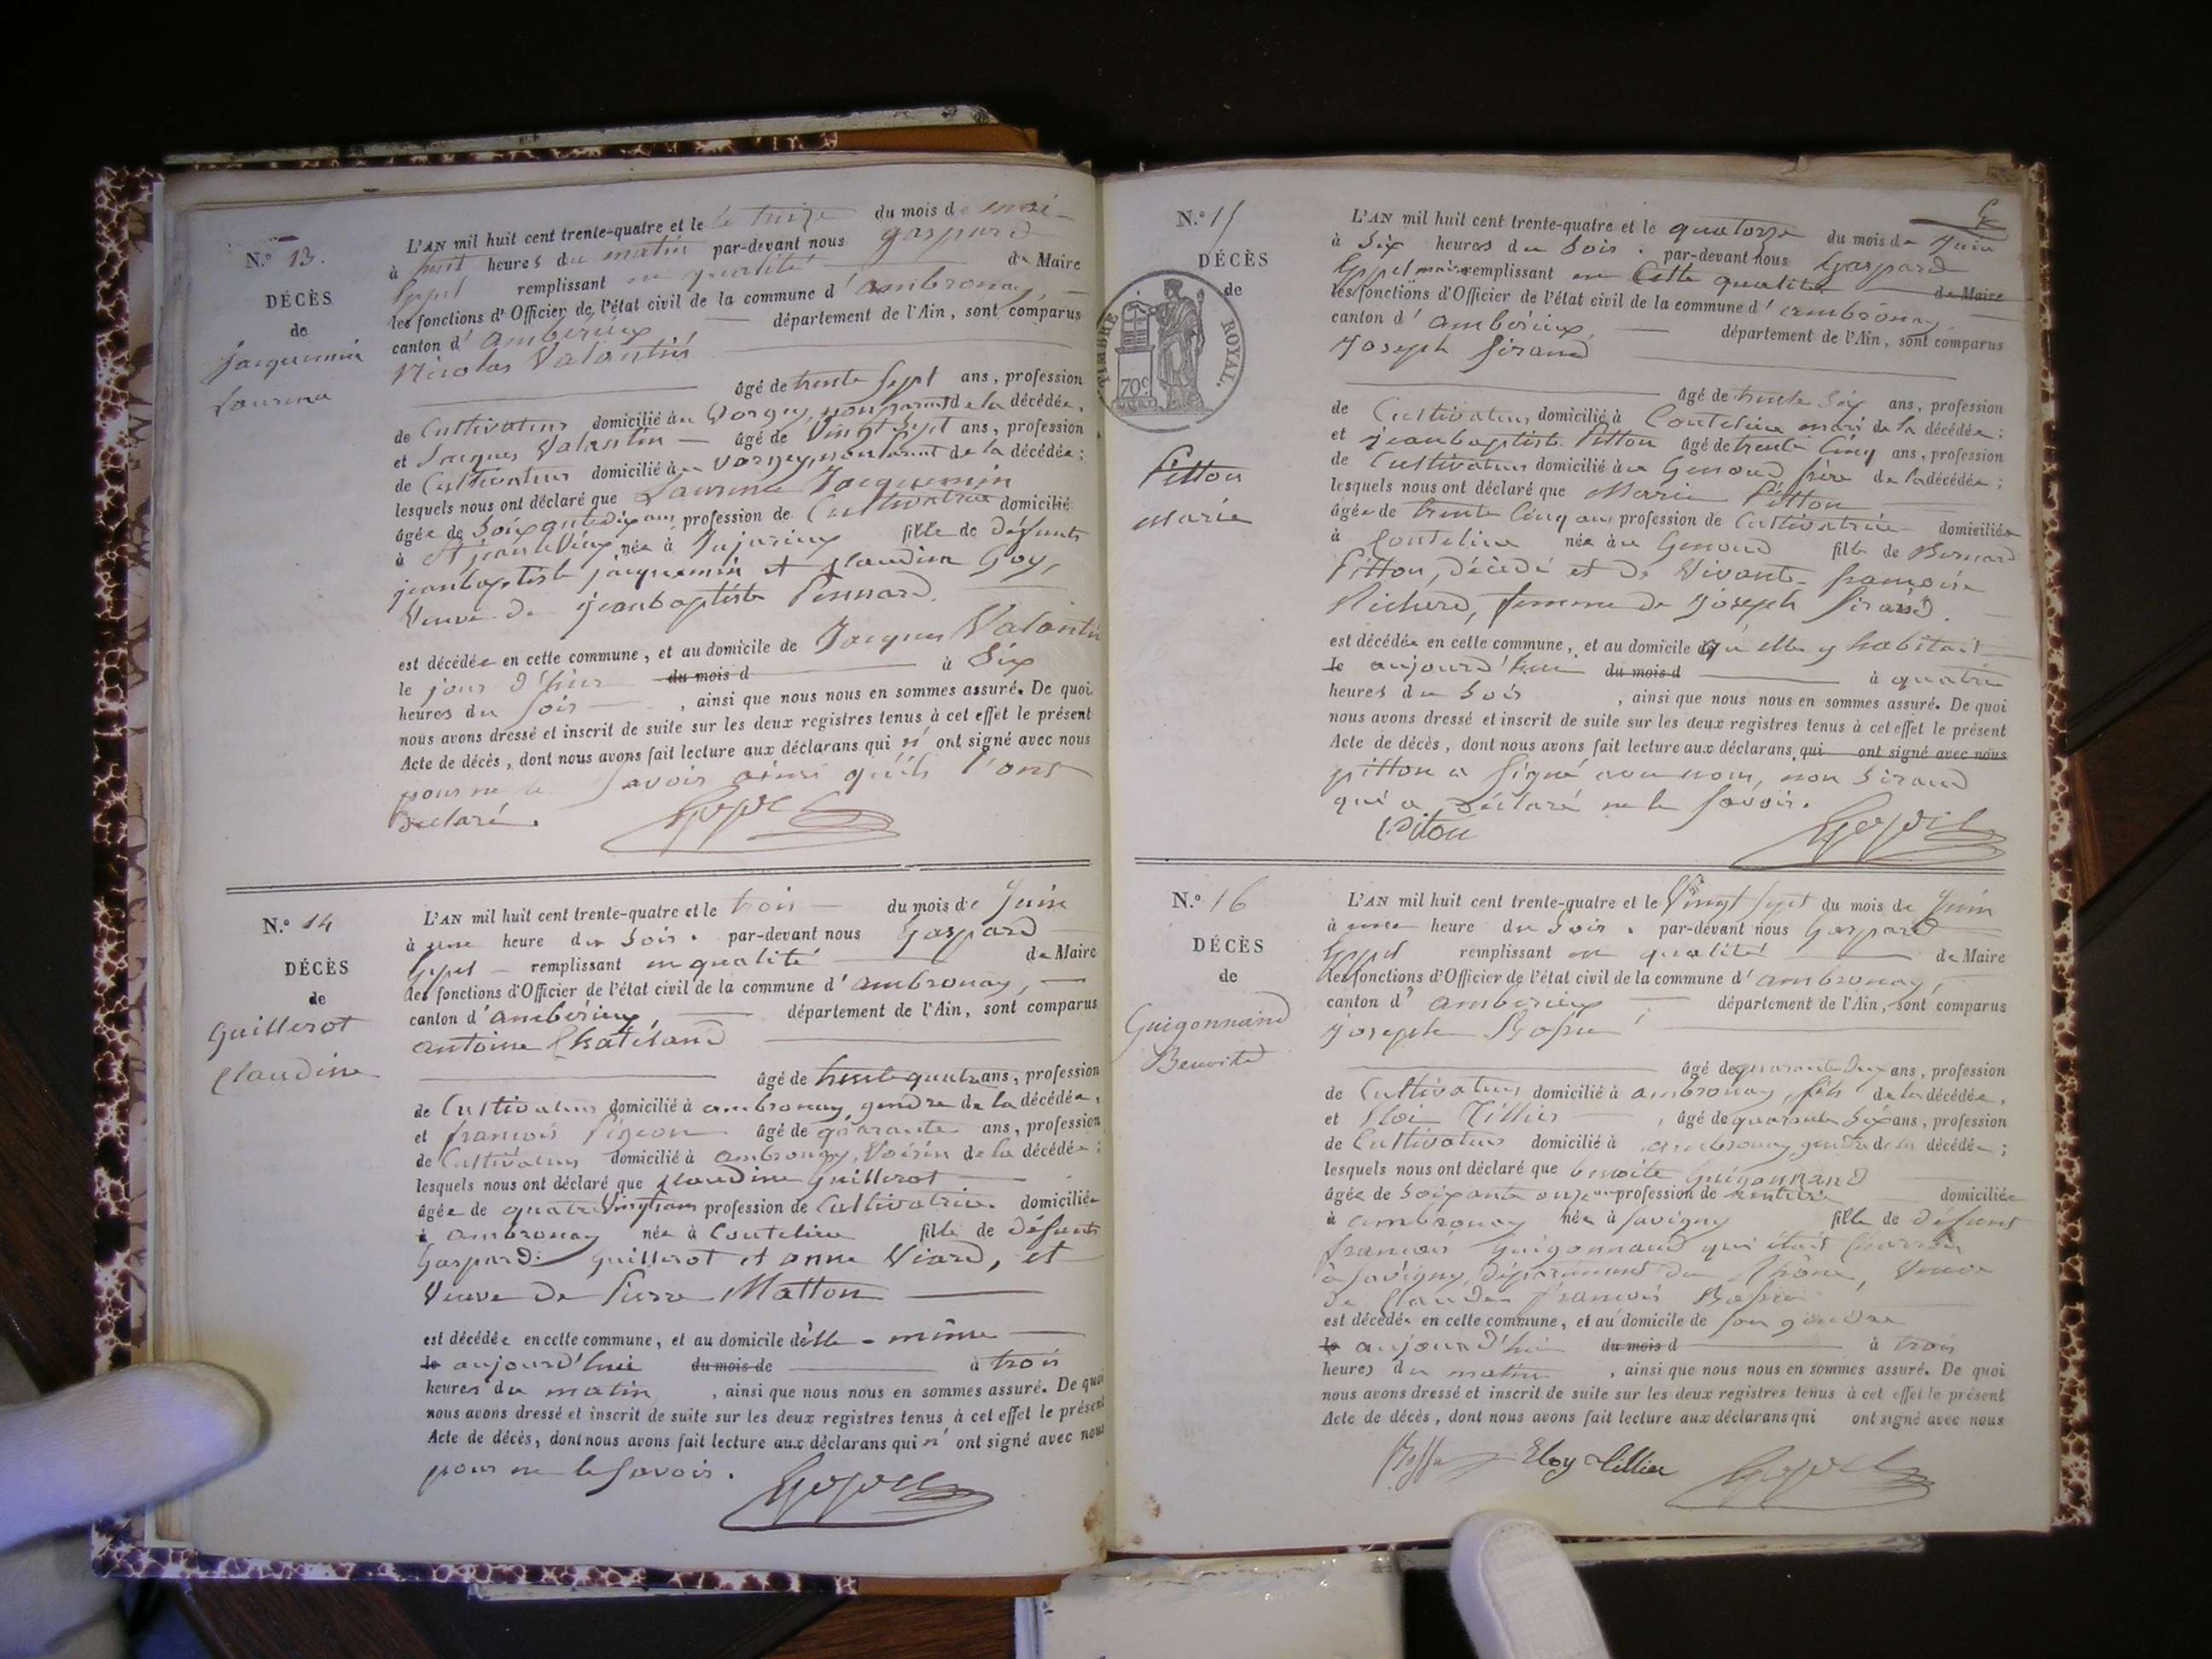 N.° 13.
DÉCÈS
de
jacquemin
Laurine
L'AN mil huit cent trente-quatre et le le treize du mois de mai
à huit heures du matin par-devant nous gaspard
Goppel remplissant en qualité de Maire
les fonctions d'Officier de l'état civil de la commune d'ambronay,
canton d'ambérieux département de l'Ain, sont comparus
Nicolas Valantin
âgé de trente sept ans, profession
de Cultivateur domicilié au Vorgey, non parent de la décédée,
et Jacques Valantin âgé de Vingt Sept ans, profession
de Cultivateur domicilié au Vorgey, non parent de la décédée;
lesquels nous ont déclaré que Laurine Jacquemin
âgée de Soixante dix ans profession de Cultivatrice domicilié
à St jean le Vieux née à Jujurieux fille de défunts
jeanbaptiste jacquemin et claudine Goy,
Veuve de jeanbaptiste Pennard.
est décédée en cette commune, et au domicile de Jacques Valantin
le jour d'hier du mois d à Six
heures du soir, ainsi que nous nous en sommes assuré. De quoi
nous avons dressé et inscrit de suite sur les deux registres tenus à cet effet le présent
Acte de décès, dont nous avons fait lecture aux déclarans qui n' ont signé avec nous
pour ne le Savoir ainsi qu'ils l'ont
Declaré.
N.° 14
DÉCÈS
de
Guillerot
Claudine
L'AN mil huit cent trente-quatre et le trois du mois de Juin
à une heure du soir. par-devant nous Gaspard
Goppel remplissant en qualité de Maire
les fonctions d'Officier de l'état civil de la commune d'ambronay,
canton d'ambérieux, département de l'Ain, sont comparus
antoine Chateland
âgé de trente quatre ans, profession
de Cultivateur domicilié à ambronay, gendre de la décédée,
et françois Pigeon âgé de quarante ans, profession
de Cultivateur domicilié à ambronay, Voisin de la décédée;
lesquels nous ont déclaré que claudine Guillerot
âgée de quatre Vingt ans profession de Cultivatrice domiciliée
à ambronay née à Coutelieu fille de défunts
Gaspard Guillerot et anne Viard, et
Veuve de Pierre Matton
est décédée en cette commune, et au domicile d'elle-même
le aujourd'hui du mois de à trois
heures du matin, ainsi que nous nous en sommes assuré. De quoi
nous avons dressé et inscrit de suite sur les deux registres tenus à cet effet le présent
Acte de décès, dont nous avons fait lecture aux déclarans qui n' ont signé avec nous
pour ne le Savoir.
N.° 15
DÉCÈS
de
TIMBRE ROYAL.
70c
Pitton
Marie
L'AN mil huit cent trente-quatre et le quatorze du mois de Juin
à Six heures du Soir. par-devant nous Gaspard
Goppel maire remplissant en Cette qualité de Maire
les fonctions d'Officier de l'état civil de la commune d'ambronay
canton d'ambérieux, département de l'Ain, sont comparus
Joseph Siraud
âgé de trente Six ans, profession
de Cultivateur domicilié à Coutelieu mari de la décédée;
et jeanbaptiste Pitton âgé de trente Cinq ans, profession
de Cultivateur domicilié au Genoud frère de la décédée;
lesquels nous ont déclaré que Marie Pitton
âgée de trente Cinq ans profession de Cultivatrice domiciliée
à Coutelieu née au Genoud fille de Bernard
Pitton, décédé et de Vivante françoise
Richerd, femme de Joseph Siraud.
est décédée en cette commune, et au domicile qu'elle y habitait
le aujourd'hui du mois d à quatre
heures du Soir, ainsi que nous nous en sommes assuré. De quoi
nous avons dressé et inscrit de suite sur les deux registres tenus à cet effet le présent
Acte de décès, dont nous avons fait lecture aux déclarans, qui ont signé avec nous
pitton a signé avec nous, non Siraud
qui a déclaré ne le Savoir.
Pitou
N.° 16
DÉCÈS
de
Guigonnand
Benoite
L'AN mil huit cent trente-quatre et le Vingt sept du mois de Juin
à une heure du Soir. par-devant nous Gaspard
Goppel remplissant en qualité de Maire
les fonctions d'Officier de l'état civil de la commune d'ambronay,
canton d'ambérieux département de l'Ain, sont comparus
Joseph
âgé de quarante deux ans, profession
de Cultivateur domicilié à ambronay, fils de la décédée,
et Eloi Tillier, âgé de quarante Six ans, profession
de Cultivateur domicilié à ambronay, gendre de la décédée;
lesquels nous ont déclaré que benoite Guigonnand
âgée de Soixante onze ans profession de rentière domiciliée
à ambronay née à Savigny fille de défunt
françois Guigonnand qui était
à Savigny, département du Rhône, Veuve
de Claude françois
est décédée en cette commune, et au domicile de son gendre
le aujourd'hui du mois d à trois
heures du matin, ainsi que nous nous en sommes assuré. De quoi
nous avons dressé et inscrit de suite sur les deux registres tenus à cet effet le présent
Acte de décès, dont nous avons fait lecture aux déclarans qui ont signé avec nous
Eloy tillier